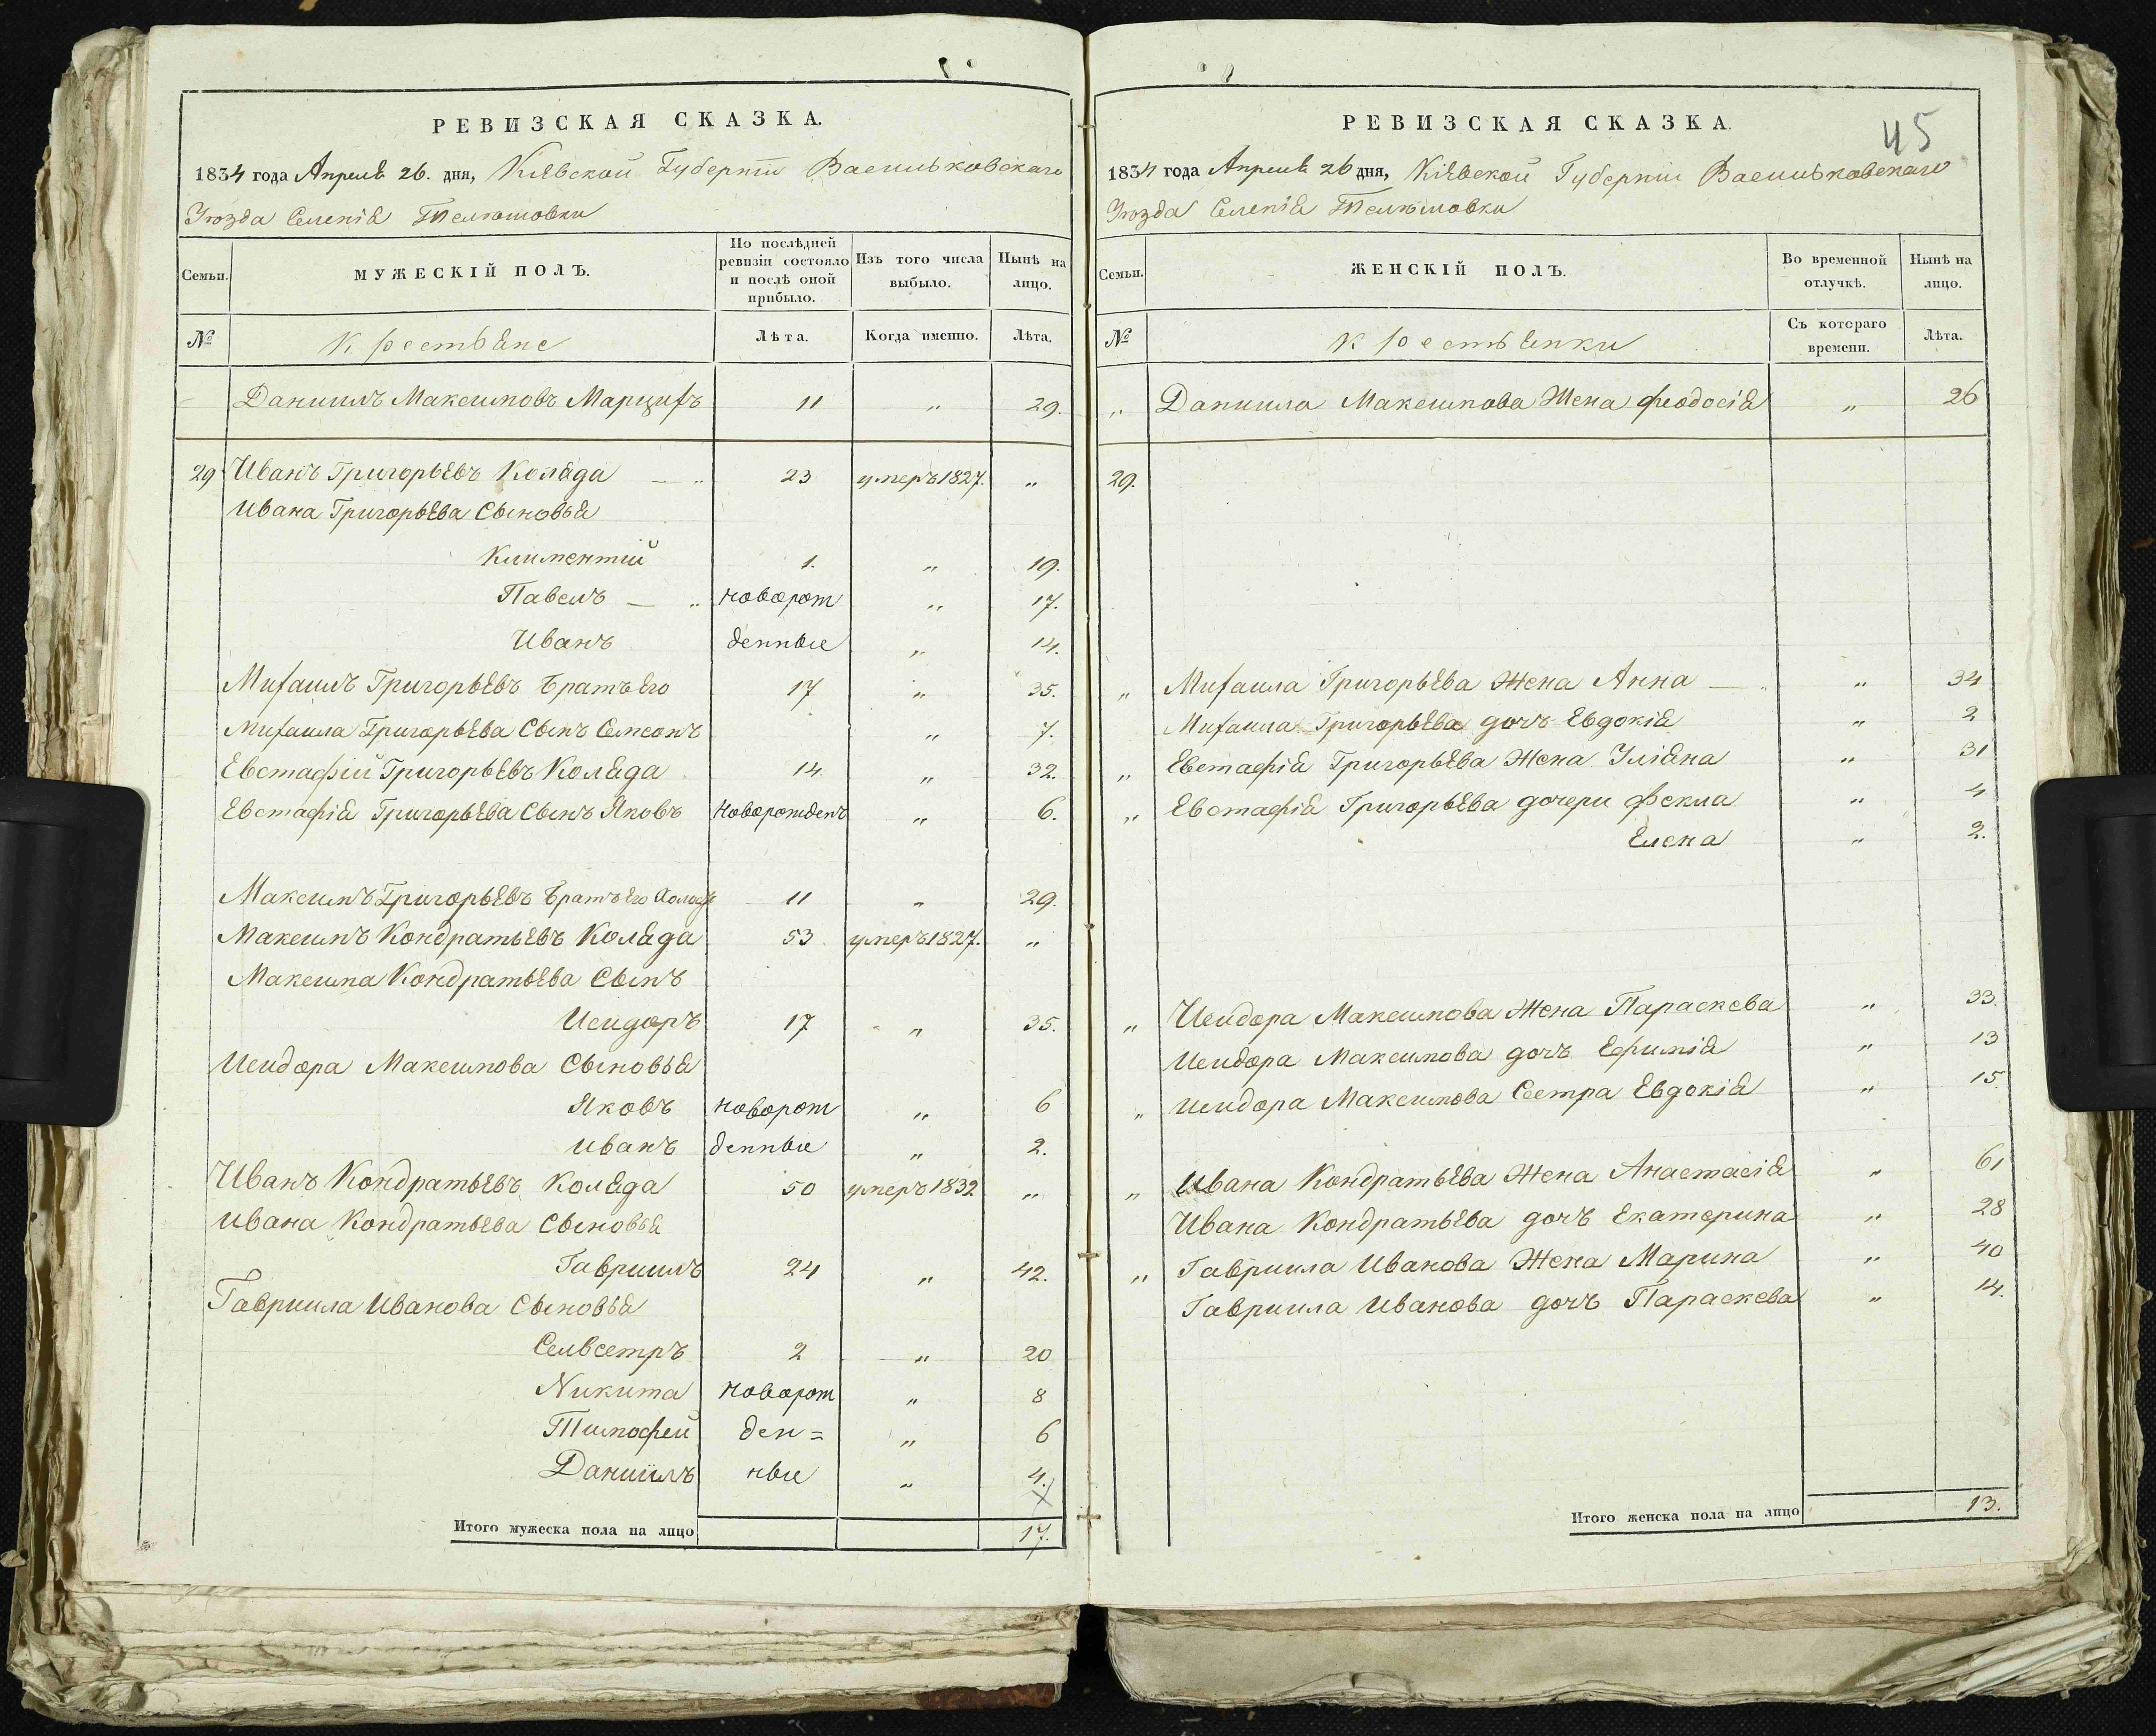 РЕВИЗСКАЯ СКАЗКА.
1834 года Апреля 26. дня, Кіевской Губерніи Васильковскаго
Уюзда Селенія Телюшовки
Семьи.
МУЖЕСКІЙ ПОЛЪ.
По послѣдней ревизіи состояло и послѣ оной прибыло.
Изъ того числа выбыло.
Нынѣ на лицо.
№
Крестьяне
Лѣта.
Когда именно.
Лѣта.
Даниилъ Максимовъ Марцихъ 11 „ 29.
29 Иванъ Григорьевъ Коляда — „ 23 умеръ 1827. „
Ивана Григорьева Сыновья
Климентій 1. „ 19.
Павелъ — „ новорож „ 17.
Иванъ денные „ 14.
Михаилъ Григорьевъ Братъ Его 17 „ 35.
Михаила Григорьева Сынъ Семсонъ „ 7.
Евстафій Григорьевъ Коляда 14. „ 32.
Евстафія Григорьева Сынъ Яковъ Новорожденъ „ 6.
Максимъ Григорьевъ Братъ Его 11 „ 29.
Максимъ Кондратьевъ Коляда 53 умеръ 1827. „
Максима Кондратьева Сынъ
Исидоръ 17 „ 35.
Исидора Максимова Сыновья
Яковъ новорож „ 6
Иванъ денные „ 2.
Иванъ Кондратьевъ Коляда 50 умеръ 1832 „
Ивана Кондратьева Сыновья
Гавриилъ 24 „ 42.
Гавриила Иванова Сыновья
Селвсетръ 2 „ 20
Никита новорож „ 8
Тимофей ден= „ 6
Даниилъ ные „ 4.
Итого мужеска пола на лицо 17.
45
РЕВИЗСКАЯ СКАЗКА.
1834 года Апреля 26 дня, Кіевской Губерніи Васильковскаго
Уюзда Селенія Телюшовки
Семьи.
ЖЕНСКІЙ ПОЛЪ.
Во временной отлучкѣ.
Нынѣ на лицо.
№
Крестьянки
Съ котораго времени.
Лѣта.
„ Даниила Максимова Жена Феодосія „ 26
29.
„ Михаила Григорьева Жена Анна — „ „ 34
Михаила Григорьева дочъ Евдокія „ 2
„ Евстафія Григорьева Жена Уліяна „ 31
„ Евстафія Григорьева дочери Фекла „ 4
Елена „ 2.
„ Исидора Максимова Жена Параскева „ 33.
Исидора Максимова дочъ Ефимія „ 13
„ Исидора Максимова Сестра Евдокія „ 15
„ Ивана Кондратьева Жена Анастасія „ 61
Ивана Кондратьева дочъ Екатерина „ 28
„ Гавриила Иванова Жена Марина „ 40
Гавриила Иванова дочъ Параскева „ 14.
Итого женска пола на лицо 13.